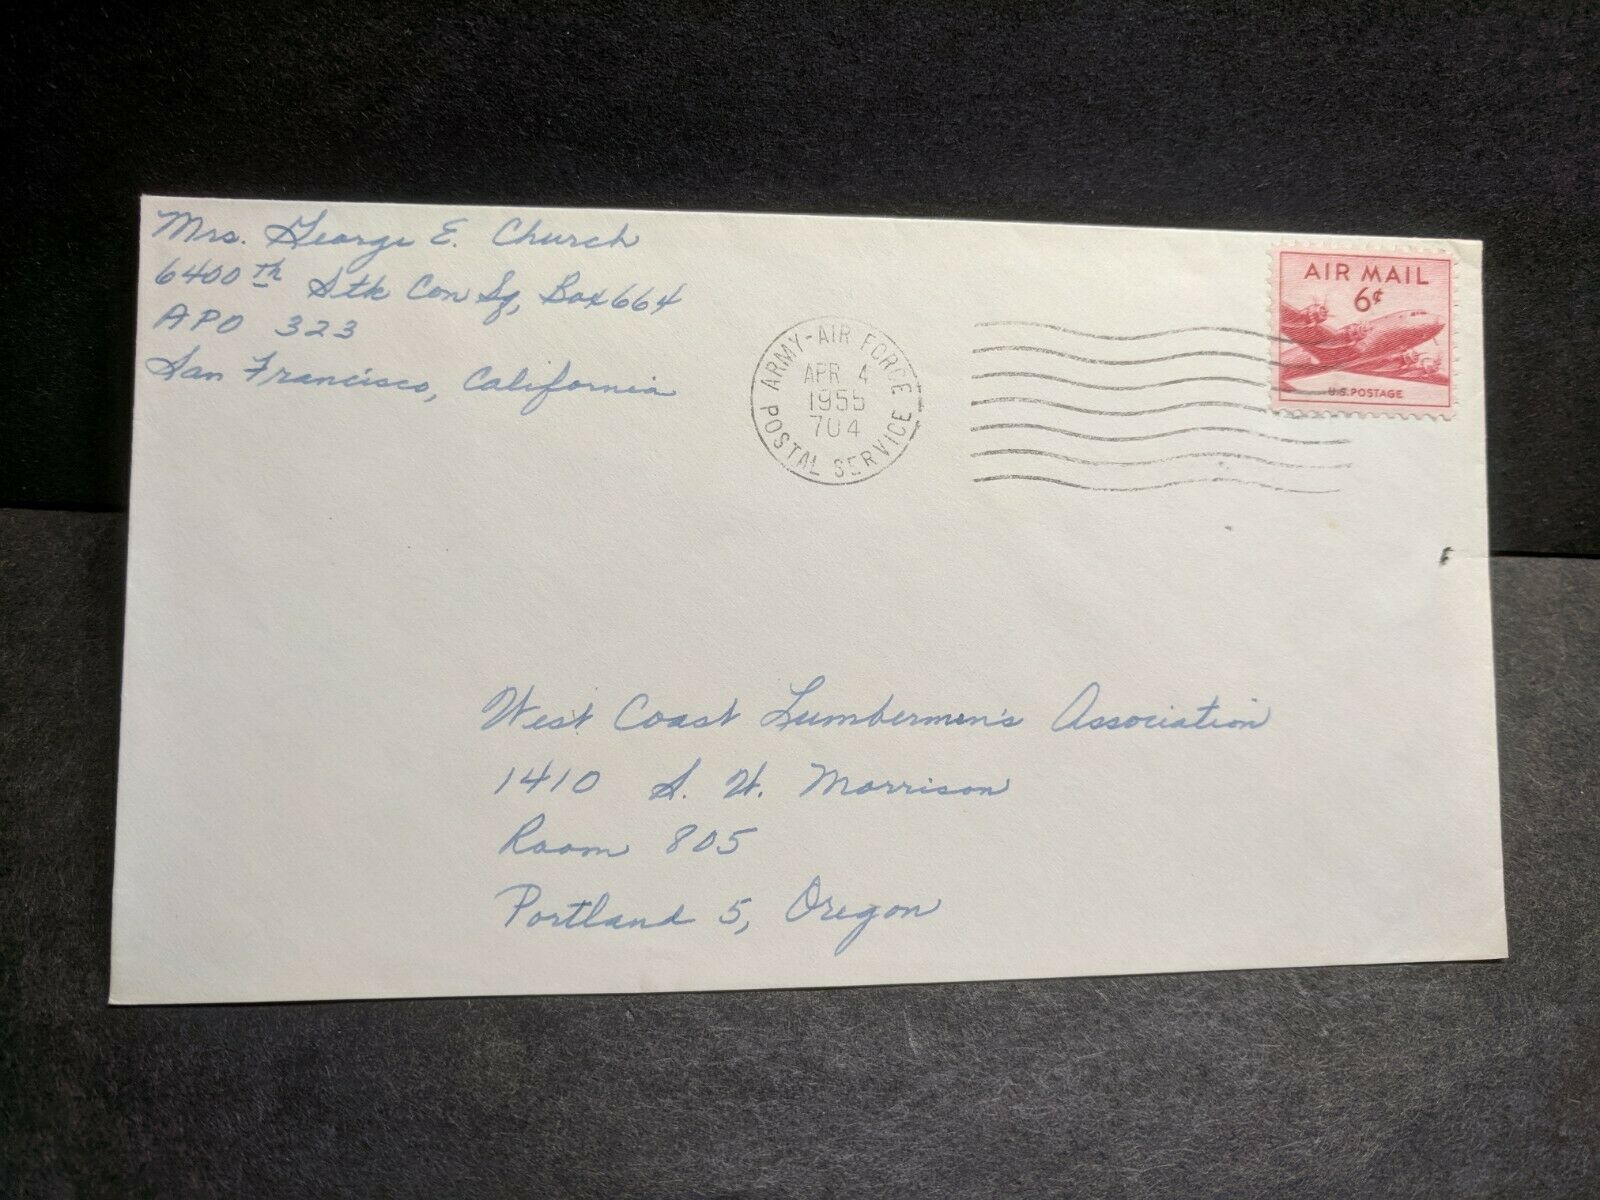 Mrs. George E. Church
6400th Stk Con Sq, Box 664
APO 323
San Francisco, California
ARMY-AIR FORCE
APR 4
1955
704
POSTAL SERVICE
AIR MAIL
6¢
U.S. POSTAGE
West Coast Lumbermen's Association
1410 S. W. Morrison
Room 805
Portland 5, Oregon